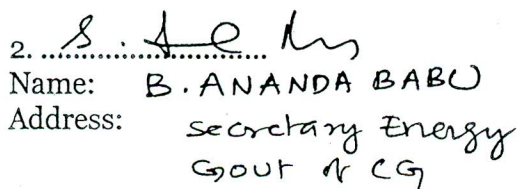 2. ........................
Name: B. ANANDA BABU
Address: Secretary Energy
Govt of CG